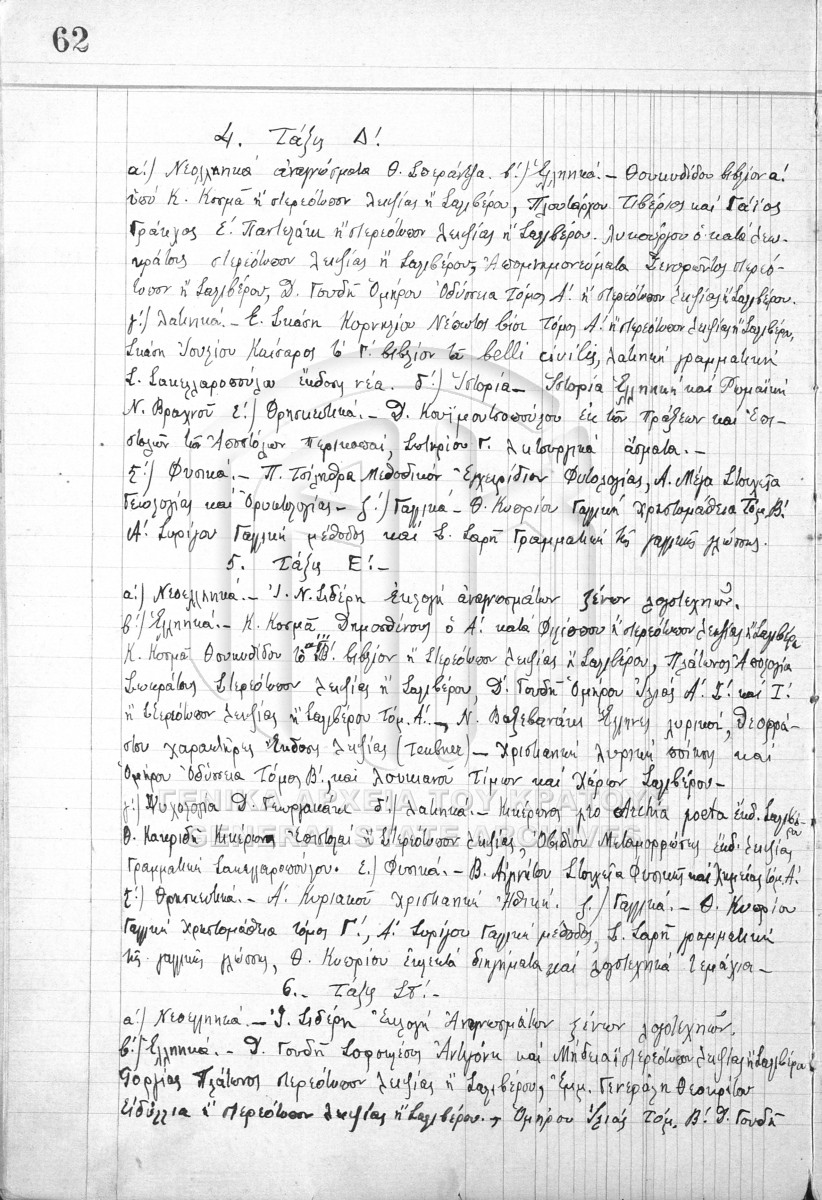 62
4. Τάξις Δ'.
α'.) Νεοελληνικά ἀναγνώσματα Θ. Σπεράντζα. β'.) Ἑλληνικά. – Θουκυδίδου βιβλίον α'.
ὑπό Κ. Κοσμᾶ ἤ στερεότυπον Λειψίας ἤ Σαλιβέρου, Πλουτάρχου Τιβέριος καί Γάϊος
Γράκχος Ε'. Παντελάκι ἤ στερεότυπον Λειψίας ἤ Σαλιβέρου. Λυκούργου ὁ κατά Λεω-
κράτους στερεότυπον Λειψίας ἤ Σαλιβέρου, Ἀπομνημονεύματα Ξενοφῶντος στερεό-
τυπον ἤ Σαλιβέρου, Δ. Γουδῆ Ὁμήρου Ὀδύσσεια Τόμος Α'. ἤ στερεότυπον Λειψίας ἤ Σαλιβέρου.
γ'.) Λατινικά. – Ε. Σκάση Κορνηλίου Νέπωτος βίοι τόμος Α'. ἤ στερεότυπον Λειψίας ἤ Σαλιβέρου,
Σκάση Ἰουλίου Καίσαρος τό Γ'. βιβλίον τοῦ belli civilis, Λατινική γραμματική
Σ. Σακελλαροπούλου ἔκδοσις νέα. δ'.) Ἱστορία – Ἱστορία Ἑλληνική καί Ρωμαϊκή
Ν. Βραχνοῦ ε'.) Θρησκευτικά. – Δ. Κουϊμουτσοπούλου ἐκ τῶν Πράξεων καί Ἐπι-
στολῶν τῶν Ἀποστόλων περικοπαί, Σωτηρίου Γ. Λειτουργικά ᾄσματα. –
ς'.) Φυσικά. – Π. Τσίληθρα Μεθοδικόν Ἐγχειρίδιον Φυτολογίας, Α. Μέγα Στοιχεῖα
Γεωλογίας καί Ὀρυκτολογίας – ζ'.) Γαλλικά – Θ. Κυπρίου Γαλλική χρηστομάθεια τόμ. Β'.
Α'. Συρίγου Γαλλική μέθοδος καί Σ. Σαρῆ Γραμματική τῆς γαλλικῆς γλώσσης.
5. Τάξις Ε'. –
α'.) Νεοελληνικά. – Ἰ. Ν. Σιδέρη ἐκλογή ἀναγνωσμάτων ξένων λογοτεχνῶν.
β'.) Ἑλληνικά. – Κ. Κοσμᾶ Δημοσθένους ὁ Α'. κατά Φιλίππου ἤ στερεότυπον Λειψίας ἤ Σαλιβέρου
Κ. Κοσμᾶ Θουκυδίδου τό Β'. βιβλίον ἤ στερεότυπον Λειψίας ἤ Σαλιβέρου, Πλάτωνος Ἀπολογία
Σωκράτους Στερεότυπον Λειψίας ἤ Σαλιβέρου, Δ'. Γουδῆ Ὁμήρου Ἰλιάς Α'. Ζ'. καί Ι'.
ἤ στερεότυπον Λειψίας ἤ Σαλιβέρου τόμ. Α'. –, Ν. Βαξεβανάκι Ἕλληνες λυρικοί, Θεοφρά-
στου χαρακτῆρες ἔκδοσις Λειψίας (Teubner) – Χριστιανική λυρική ποίησις καί
Ὁμήρου Ὀδύσσεια Τόμος Β'., καί Λουκιανοῦ Τίμων καί Χάρων Σαλιβέρου –
γ'.) Ψυχολογία Δ. Γεωργακάκι δ'.) Λατινικά. – Κικέρωνος pro Archia poeta ἔκδ. Σαλιβέρου
Θ. Κακριδῆ Κικέρωνος Ἐπιστολαί ἤ Στερεότυπον Λειψίας, Ὀβιδίου Μεταμορφώσεις ἔκδ. Λειψίας
Γραμματική Σακελλαροπούλου. ε'.) Φυσικά. – Β. Αἰγινήτου Στοιχεῖα Φυσικῆς καί Χημείας τόμ. Α'.
ς'.) Θρησκευτικά. – Α'. Κυριακοῦ Χριστιανική Ἠθική. ζ'.) Γαλλικά. – Θ. Κυπρίου
Γαλλική Χρηστομάθεια τόμος Γ'., Α'. Συρίγου Γαλλική μέθοδος, Σ. Σαρῆ γραμματική
τῆς γαλλικῆς γλώσσης, Θ. Κυπρίου ἐκλεκτά διηγήματα καί λογοτεχνικά τεμάχια –
6. – Τάξις ΣΤ'. –
α'.) Νεοελληνικά. – Ἰ. Σιδέρη Ἐκλογή Ἀναγνωσμάτων ξένων λογοτεχνῶν.
β'.) Ἑλληνικά. – Δ. Γουδῆ Σοφοκλέους Ἀντιγόνη καί Μήδεια ἤ στερεότυπον Λειψίας ἤ Σαλιβέρου
Γοργίας Πλάτωνος στερεότυπον Λειψίας ἤ Σαλιβέρου, Ἐμμ. Γενεράλη Θεοκρίτου
Εἰδύλλια ἤ στερεότυπον Λειψίας ἤ Σαλιβέρου. –, Ὁμήρου Ἰλιάς τόμ. Β'. Δ. Γουδῆ
ΓΕΝΙΚΑ ΑΡΧΕΙΑ ΤΟΥ ΚΡΑΤΟΥΣ
GENERAL STATE ARCHIVES